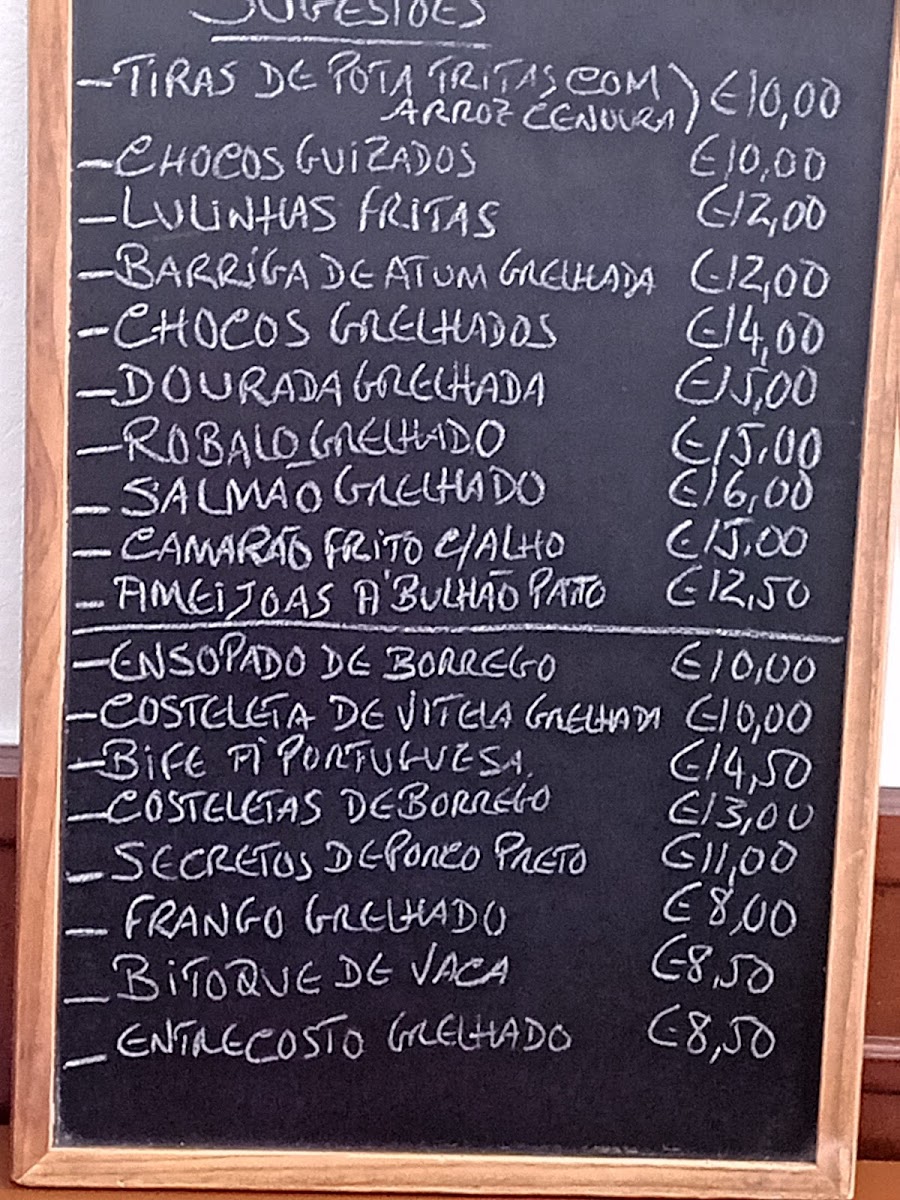 SUGESTÕES
- TIRAS DE POTA FRITAS COM ) €10,00
ARROZ CENOURA )
- CHOCOS GUIZADOS €10,00
- LULINHAS FRITAS €12,00
- BARRIGA DE ATUM GRELHADA €12,00
- CHOCOS GRELHADOS €14,00
- DOURADA GRELHADA €15,00
- ROBALO GRELHADO €15,00
- SALMÃO GRELHADO €16,00
- CAMARÃO FRITO C/ALHO €15,00
- AMEIJOAS À BULHÃO PATO €12,50
- ENSOPADO DE BORREGO €10,00
- COSTELETA DE VITELA GRELHADA €10,00
- BIFE À PORTUGUESA €14,50
- COSTELETAS DE BORREGO €13,00
- SECRETOS DE PORCO PRETO €11,00
- FRANGO GRELHADO €8,00
- BITOQUE DE VACA €8,50
- ENTRECOSTO GRELHADO €8,50